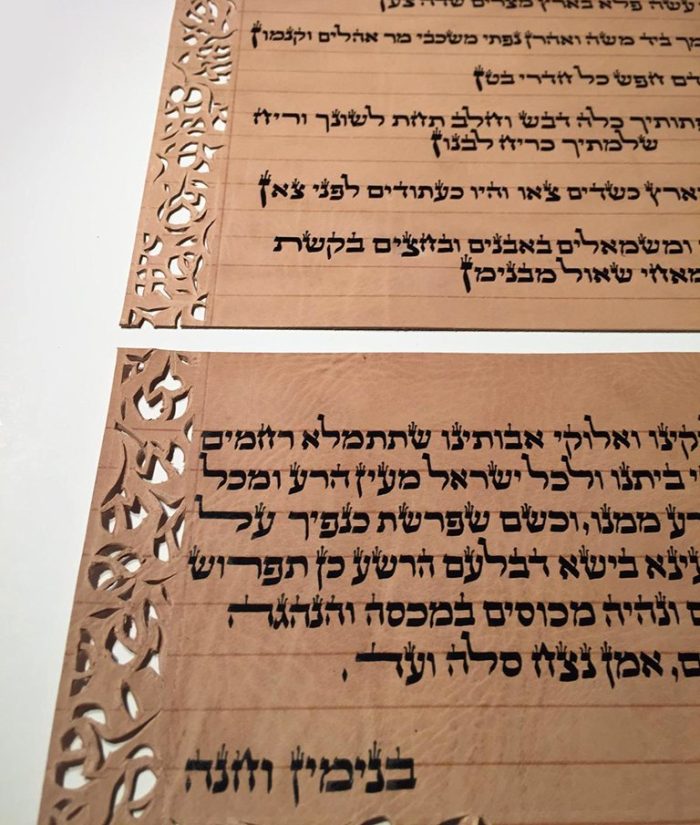 עשה פלא בארץ מצרים שדה צען
מך ביד משה ואהרן נפתי משכבי מר אהלים וקנמון
דם חפש כל חדרי בטן
תותיך כלה דבש וחלב תחת לשונך וריח
שלמתיך כריח לבנון
ארץ כשדים צאו והיו כעתודים לפני צאן
ומשמאלים באבנים ובחצים בקשת
מאחי שאול מבנימן
קינו ואלוקי אבותינו שתתמלא רחמים
י ביתנו ולכל ישראל מעין הרע ומכל
רע ממנו, וכשם שפרשת כנפיך על
עינא בישא דבלעם הרשע כן תפרוש
ם ונהיה מכוסים במכסה והנהגה
ם, אמן נצח סלה ועד.
בנימין וחנה